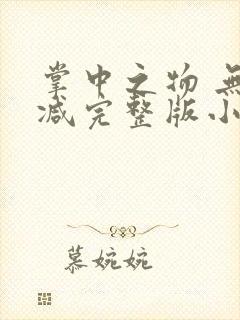 掌中之物 無
减完整版小
慕婉婉